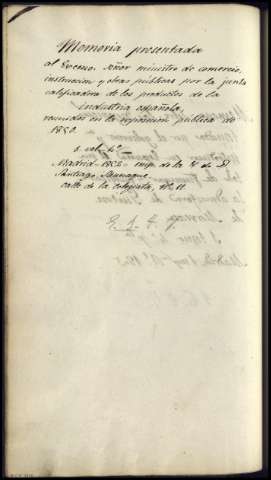 Memoria presentada
al Excmo. Señor ministro de comercio,
instruccion y obras públicas por la junta
calificadora de los productos de la
industria española
reunidos en la esposicion pública de
1850.
1 vol. 4º
Madrid - 1851 - imp. de la V. de D.
Santiago Saunaque
calle de la Colegiata, nº 11.